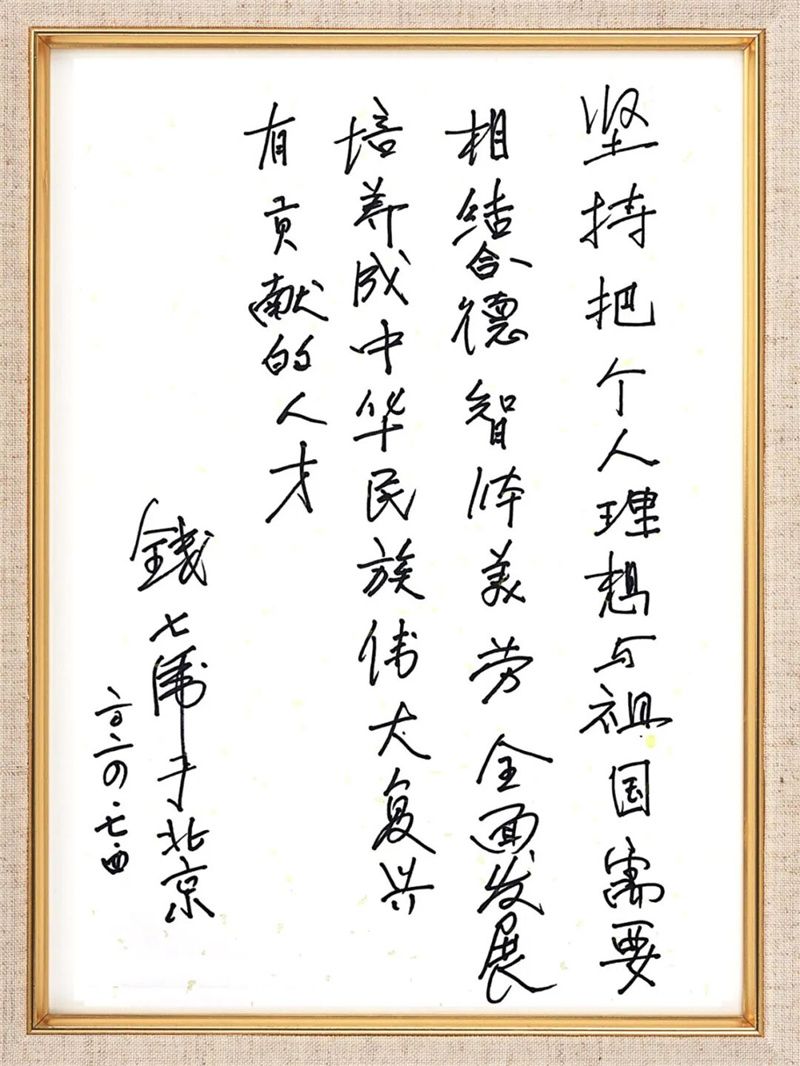 坚持把个人理想与祖国需要
相结合德智体美劳全面发展
培养成中华民族伟大复兴
有贡献的人才
錢七虎于北京
二〇二〇.七.四